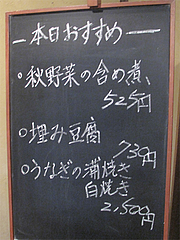 ー本日おすすめー
・秋野菜の含め煮
525円
・埋み豆腐
730円
・うなぎの蒲焼き
白焼き
2,500円